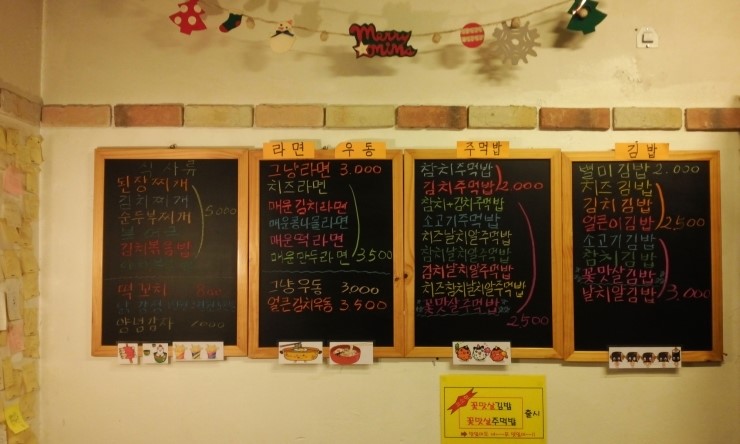 Merry
Xmas
라면
우동
주먹밥
김밥
식사류
된장찌개
김치찌개
순두부찌개
5,000
김치볶음밥
떡꼬치
양념감자
그냥라면 3,000
치즈라면
매운김치라면
매운콩나물라면
매운떡라면
매운만두라면
3500
그냥우동 3,000
얼큰김치우동 3,500
참치주먹밥
김치주먹밥
2,000
참치+김치주먹밥
소고기주먹밥
치즈날치알주먹밥
참치날치알주먹밥
김치날치알주먹밥
치즈참치날치알주먹밥
꽃맛살주먹밥
2500
별미김밥 2,000
치즈김밥
김치김밥
얼큰이김밥
2,500
소고기김밥
참치김밥
꽃맛살김밥
날치알김밥
3,000
꽃맛살김밥
꽃맛살주먹밥
출시